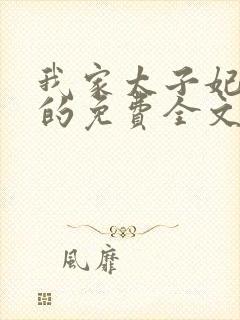 我家太子妃
的免費全文
風靡